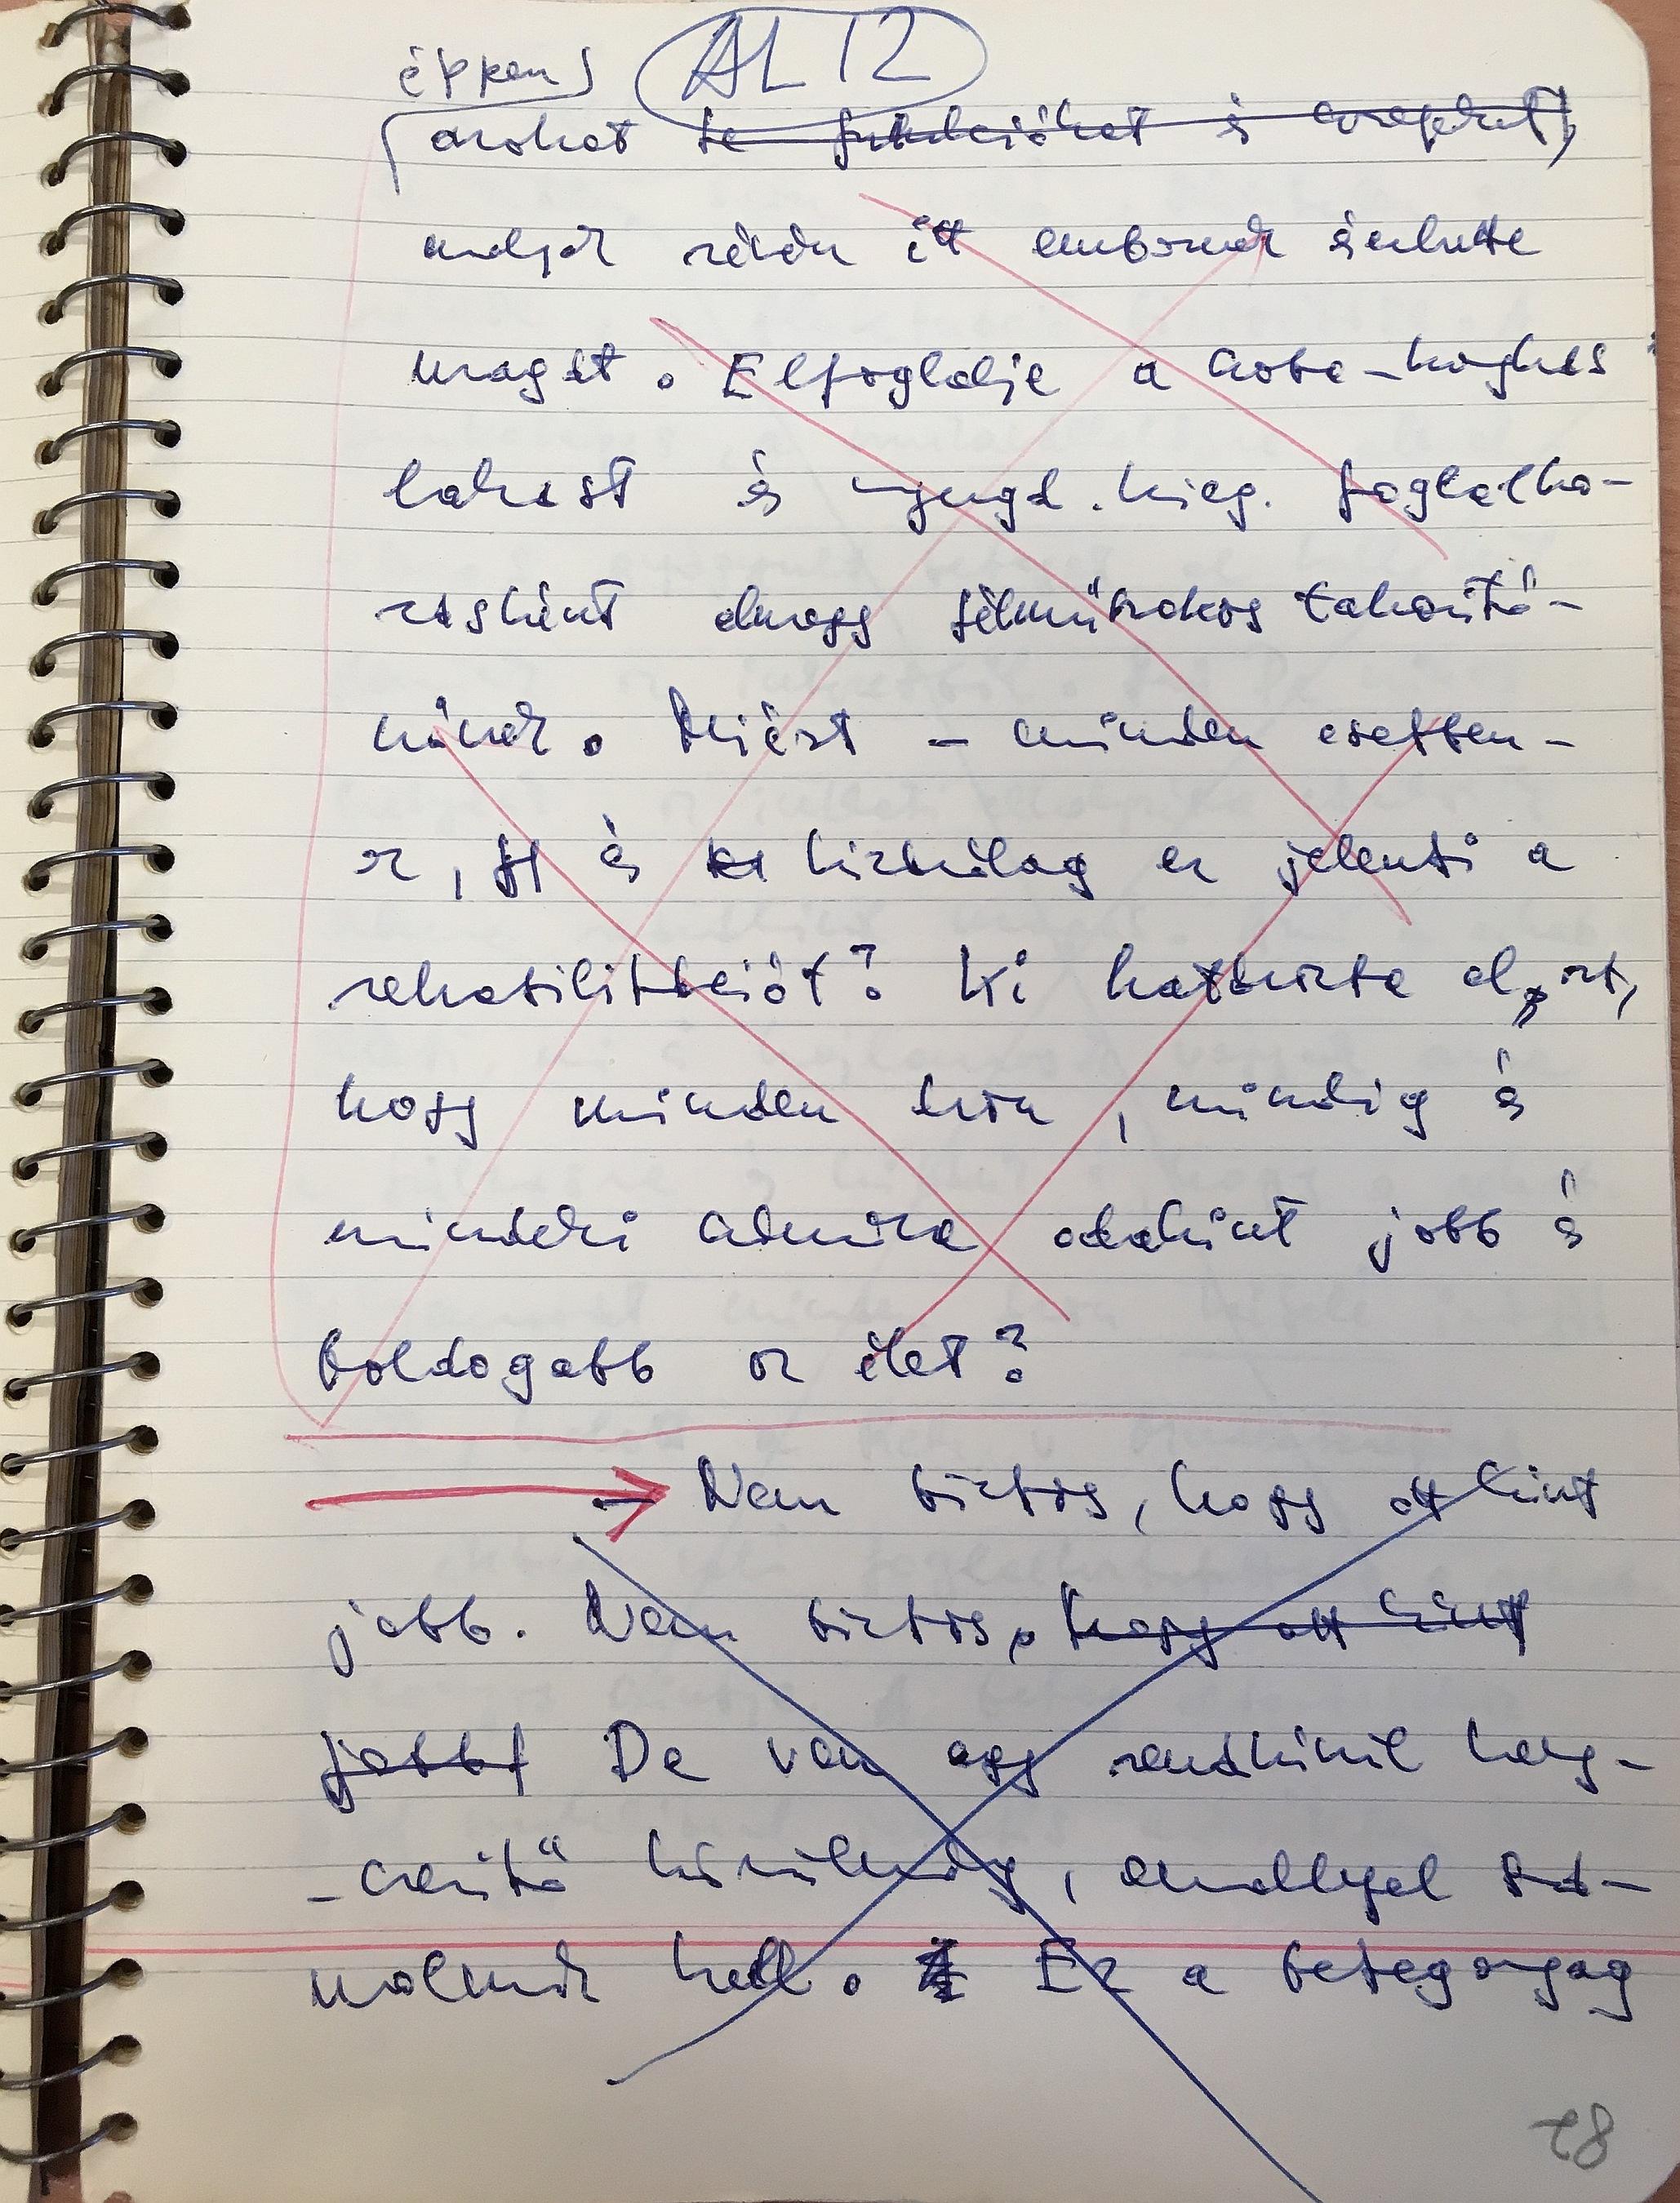 éppen
AL 12
azokat be funkciókat és szerepeket,
melyek révén itt embernek érezhette
magát. Elfoglalja a koba-konyhás
lakást és nyugd. kieg. foglalko-
zásként elmegy félműszakos takarító-
nőnek. Miért – minden esetben –
ez, és kizárólag ez jelenti a
rehabilitációt? Ki határozta el azt,
hogy minden kor, mindig és
mindenki számára odakint jobb és
boldogabb az élet?
– Nem biztos, hogy ott kint
jobb. Nem biztos. hogy ott kint
jobb! De van egy rendkívül hang-
-szerítő körülmény, amellyel szá-
molnunk kell. Ez a beteganyag
78